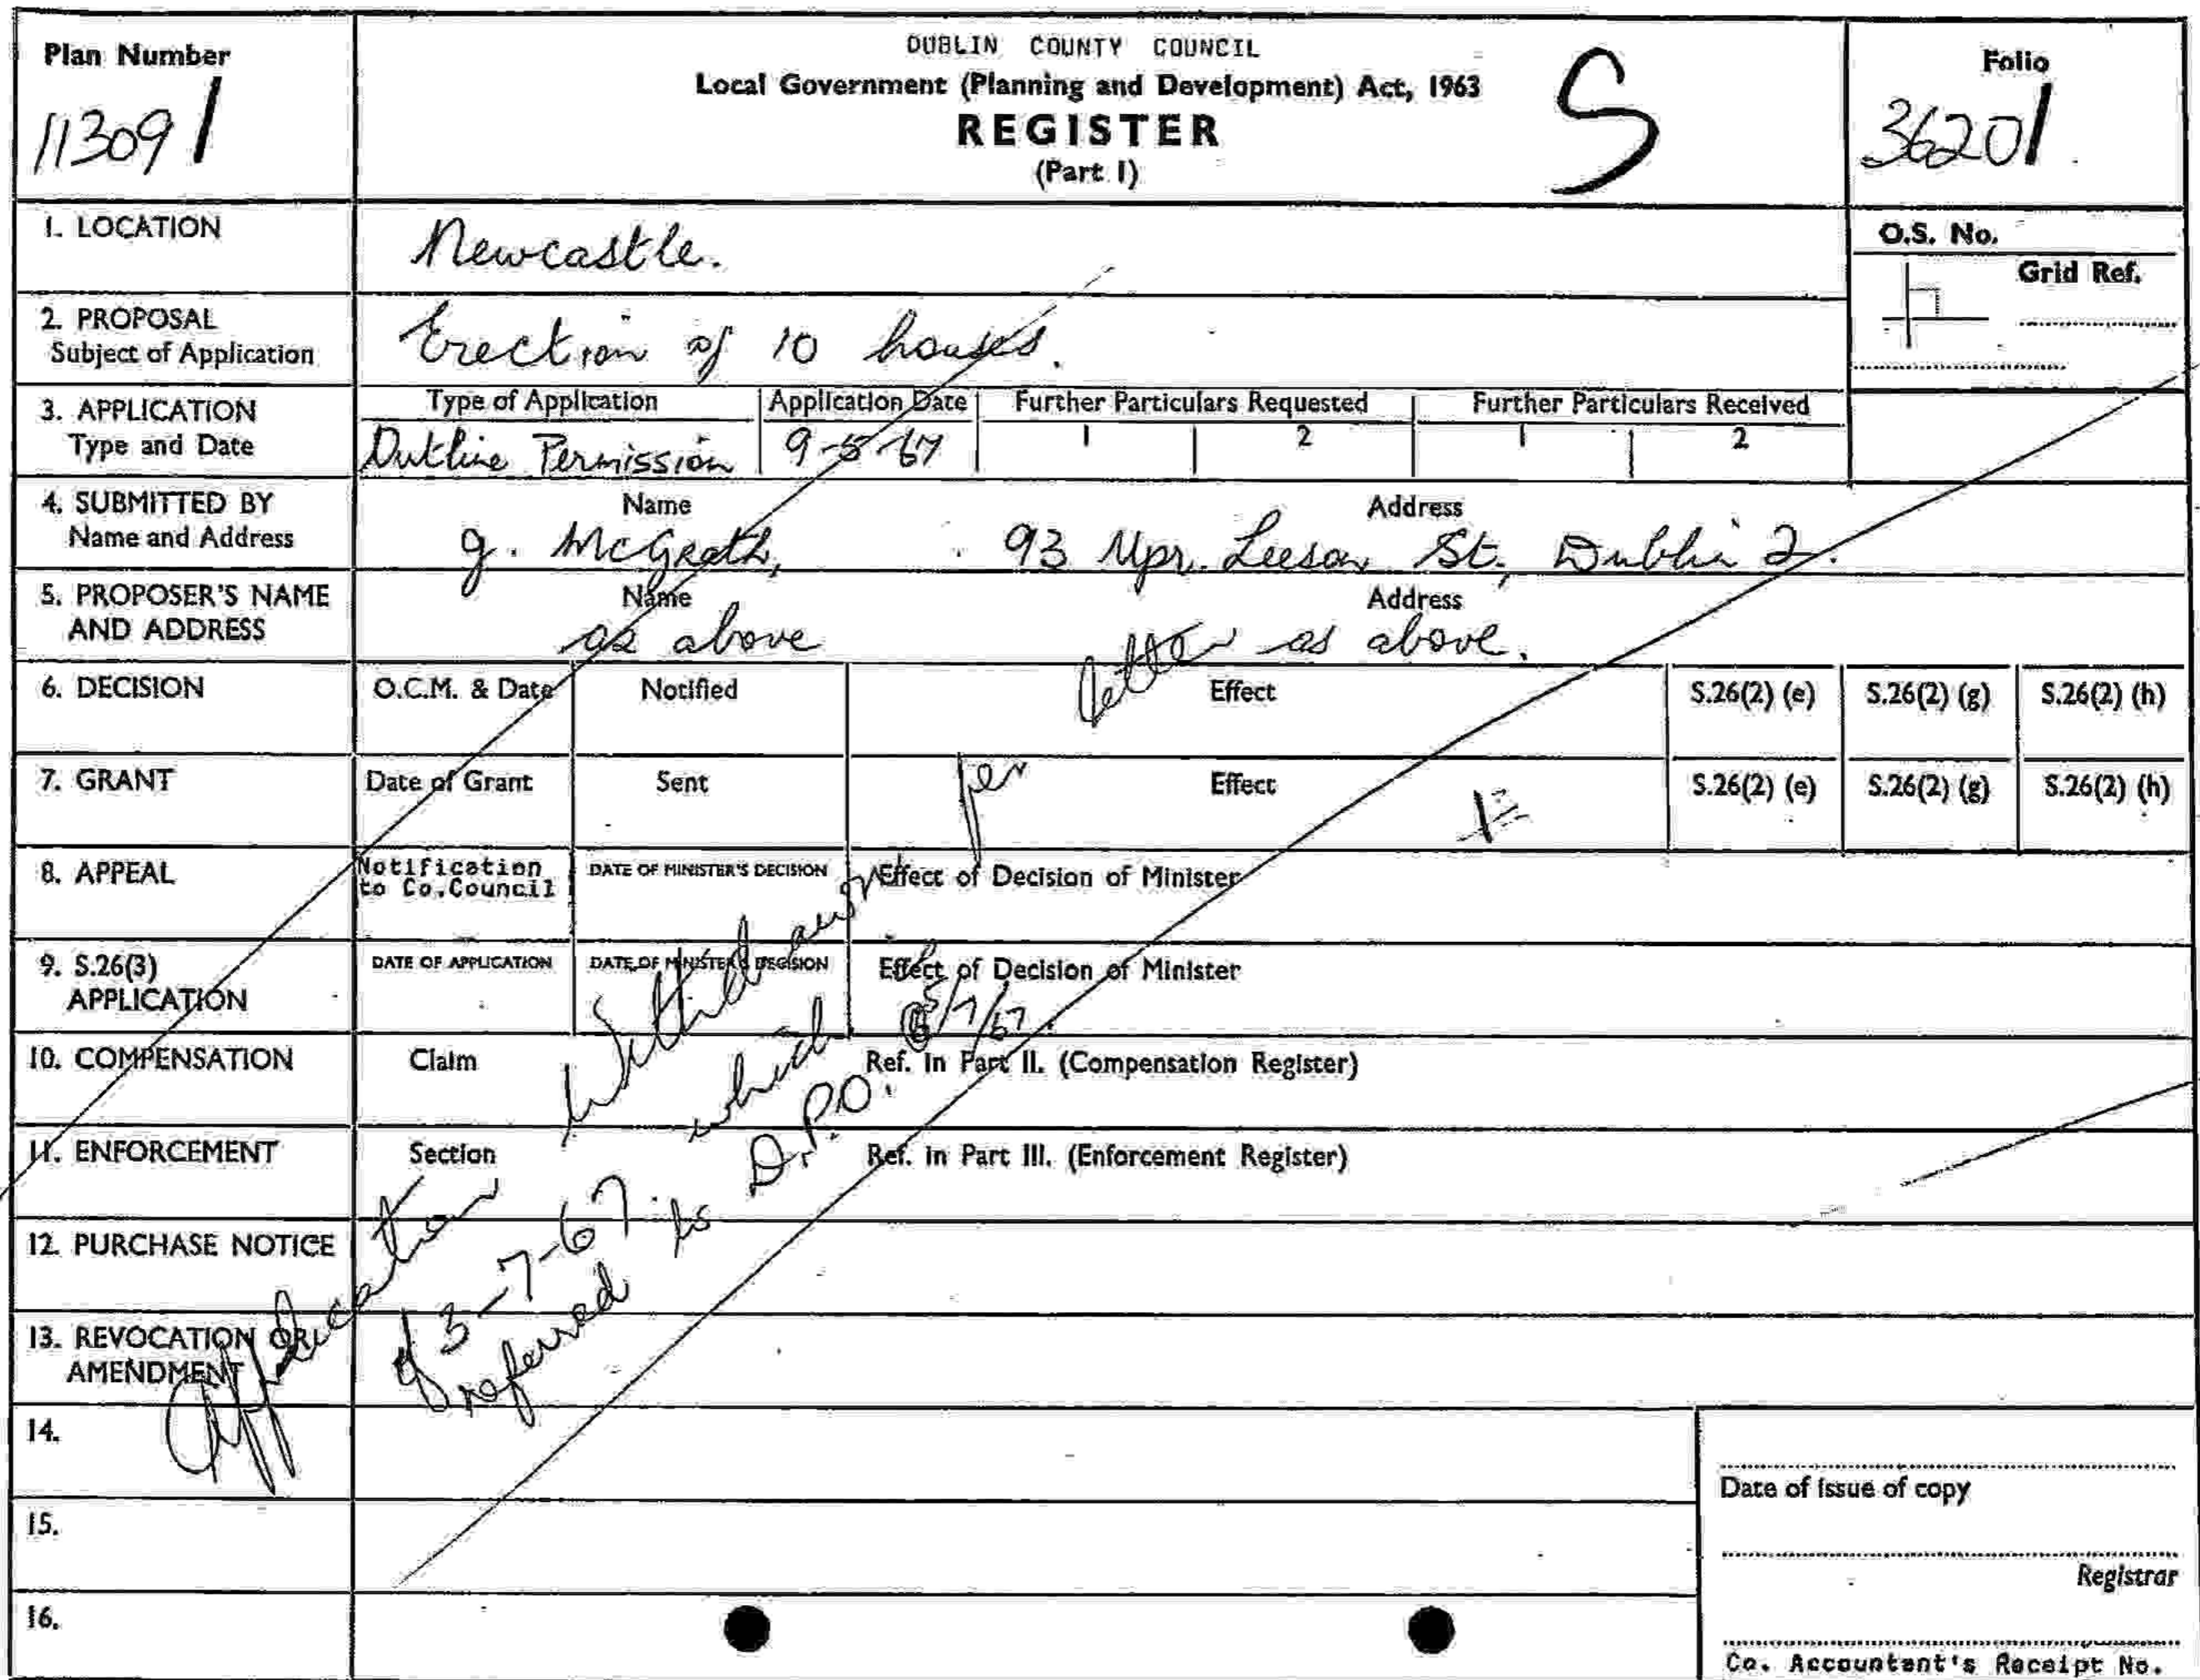 Plan Number
11309/
DUBLIN COUNTY COUNCIL
Local Government (Planning and Development) Act, 1963
REGISTER
(Part I)
S
Folio
36201.
1. LOCATION
Newcastle.
O.S. No.
Grid Ref.
2. PROPOSAL
Subject of Application
Erection of 10 houses.
3. APPLICATION
Type and Date
Type of Application
Outline Permission
Application Date
9-5-67
Further Particulars Requested
1 2
Further Particulars Received
1 2
4. SUBMITTED BY
Name and Address
Name
G. McGrath,
Address
93 Upr. Leeson St., Dublin 2.
5. PROPOSER'S NAME
AND ADDRESS
Name
as above
Address
as above.
6. DECISION
O.C.M. & Date
Notified
Effect
S.26(2) (e)
S.26(2) (g)
S.26(2) (h)
7. GRANT
Date of Grant
Sent
Effect
S.26(2) (e)
S.26(2) (g)
S.26(2) (h)
8. APPEAL
Notification
to Co.Council
DATE OF MINISTER'S DECISION
Effect of Decision of Minister
9. S.26(3)
APPLICATION
DATE OF APPLICATION
DATE OF MINISTER'S DECISION
Effect of Decision of Minister
10. COMPENSATION
Claim
Ref. in Part II. (Compensation Register)
11. ENFORCEMENT
Section
Ref. in Part III. (Enforcement Register)
12. PURCHASE NOTICE
13. REVOCATION OR
AMENDMENT
Application Withdrawn per letter
of 3-7-67. which
referred to D.P.O. 5/7/67.
14.
15.
16.
Date of issue of copy
Registrar
Co. Accountant's Receipt No.